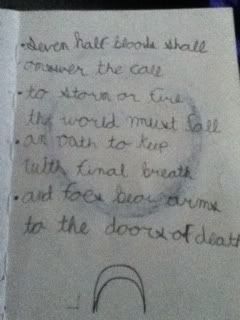 • Seven half bloods shall
answer the call
• to storm or fire
the world must fall
• an oath to keep
with final breath
• and foes bear arms
to the doors of death